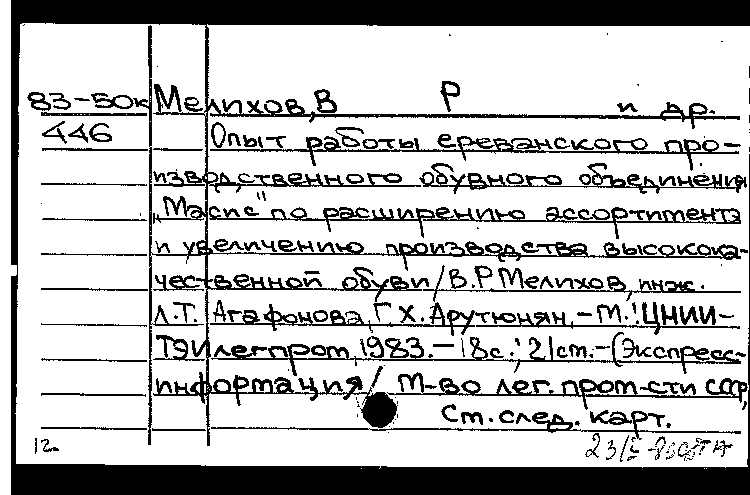 83-50к Мелихов, В Р и др.
446 Опыт работы ереванского про-
изводственного обувного объединения
„Масис" по расширению ассортимента
и увеличению производства высокока-
чественной обуви / В.Р. Мелихов, инж.
Л.Т. Агафонова, Г.Х. Арутюнян, - М.: ЦНИИ-
ТЭИлегпром, 1983. - 18с.; 21см. - (Экспресс-
информация / М-во лег. пром-сти СССР,
См. след. карт.
12